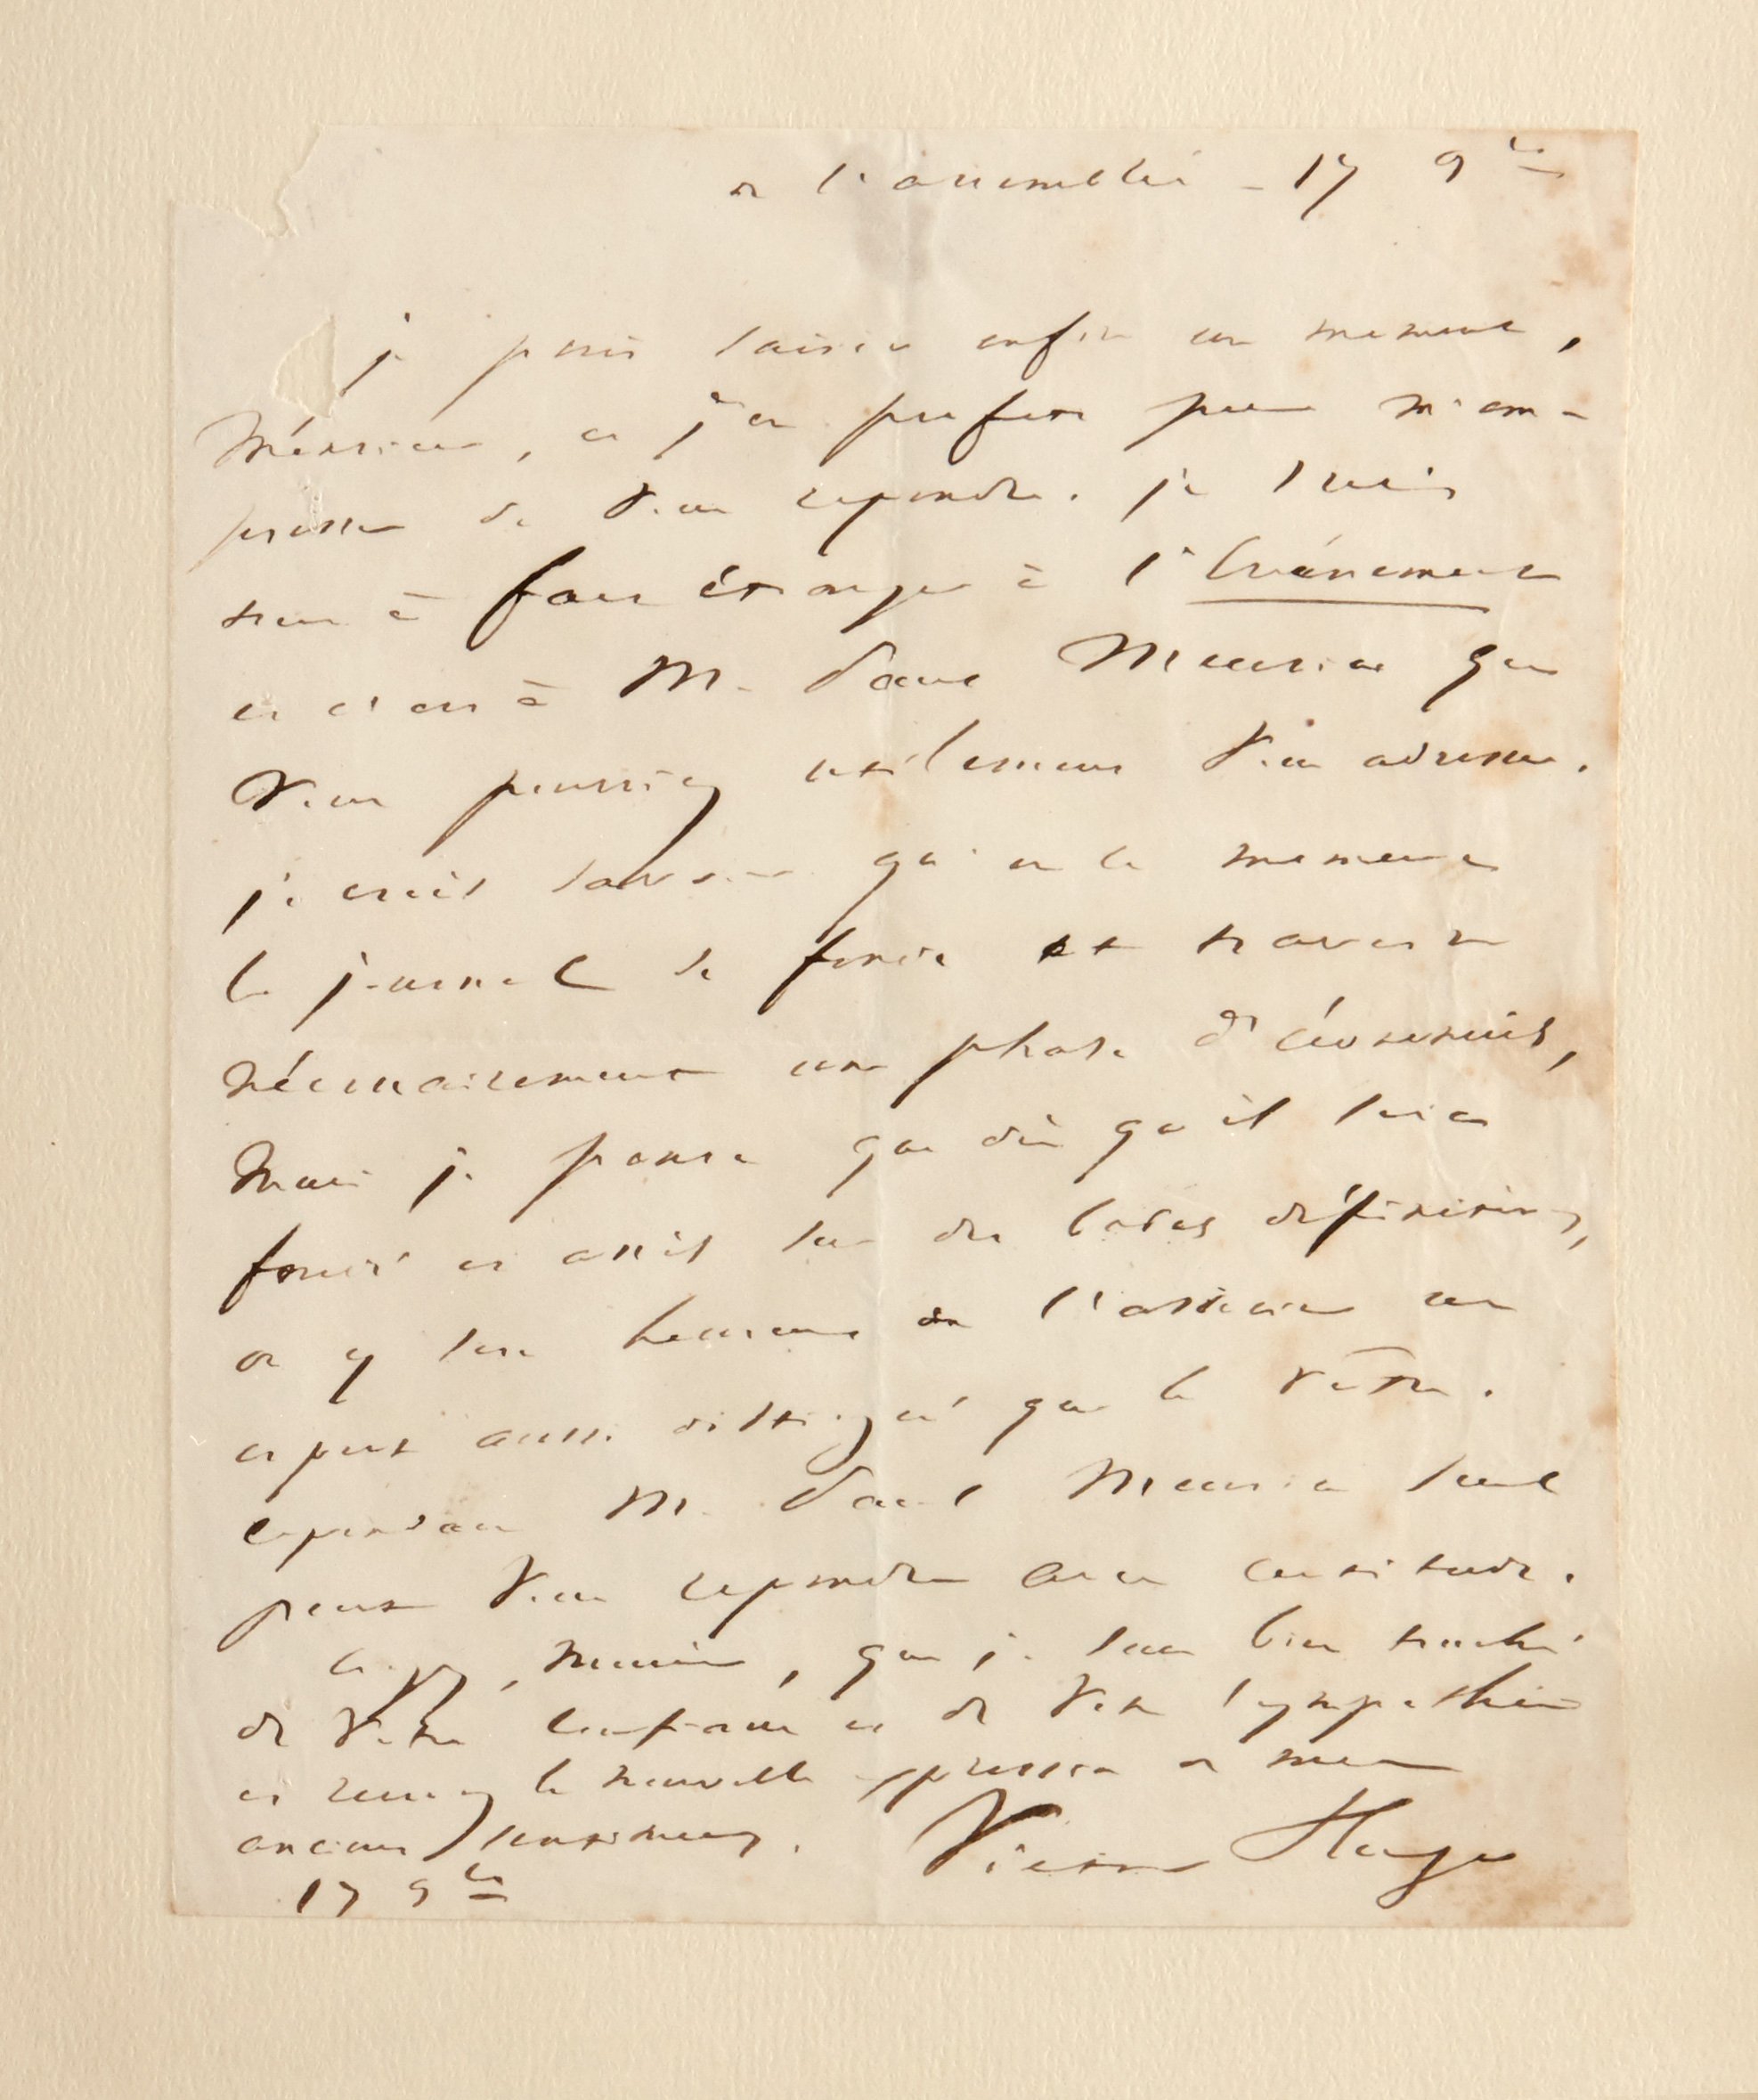 à l'assemblée - 17 9bre
je puis saisir enfin un moment,
Monsieur, et j'en profite pour m'em-
presser de vous répondre. je suis
tout à fait étranger à l'Événement
et c'est à M. Paul Meurice que
vous pourriez utilement vous adresser.
je crois savoir qu'en ce moment
le journal se fonde et traverse
nécessairement une phase d'économies,
mais je pense que dès qu'il sera
fondé et assis sur des bases définitives,
on y sera heureux de s'associer un
esprit aussi distingué que le vôtre.
cependant M. Paul Meurice seul
peut vous répondre avec certitude.
croyez, Monsieur, que je suis bien touché
de votre confiance et de votre sympathie
et recevez la nouvelle expression de mes
anciens sentiments. Victor Hugo
17 9bre